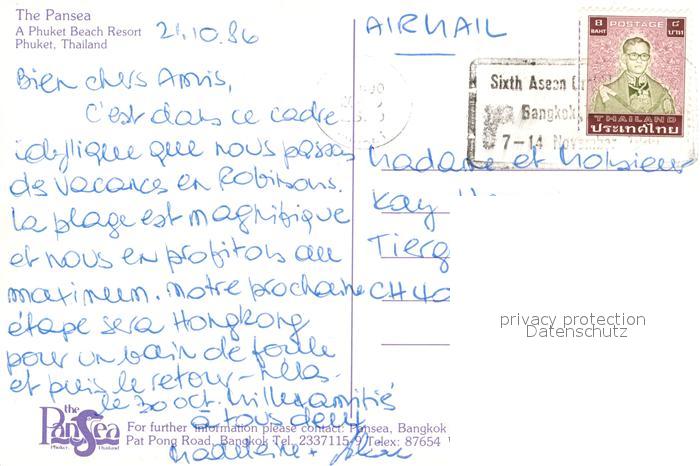 The Pansea
A Phuket Beach Resort
Phuket, Thailand
21.10.86
Bien chers Amis,
C'est dans ce cadre
idyllique que nous passons
des vacances en Robinsons.
La plage est magnifique
et nous en profitons au
maximum. Notre prochaine
étape sera Hongkong
pour un bain de foule
et puis le retour - hélas -
le 30 oct. Mille amitiés
à tous deux
Madeleine +
the
PanSea
Phuket, Thailand
For further information please contact: Pansea, Bangkok
Pat Pong Road, Bangkok Tel. 2337115-9 Telex: 87654
AIRMAIL
8 POSTAGE ๘
BAHT บาท
THAILAND
ประเทศไทย
Sixth Asean
Bangkok,
7-14 November
Madame et Monsieur
Kay
Tierg
CH 40
privacy protection
Datenschutz